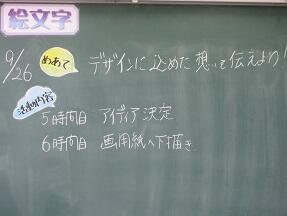 絵文字
9/26
めあて デザインに込めた想いを伝えよう!
活動内容
5時間目 アイディア決定
6時間目 画用紙へ下描き